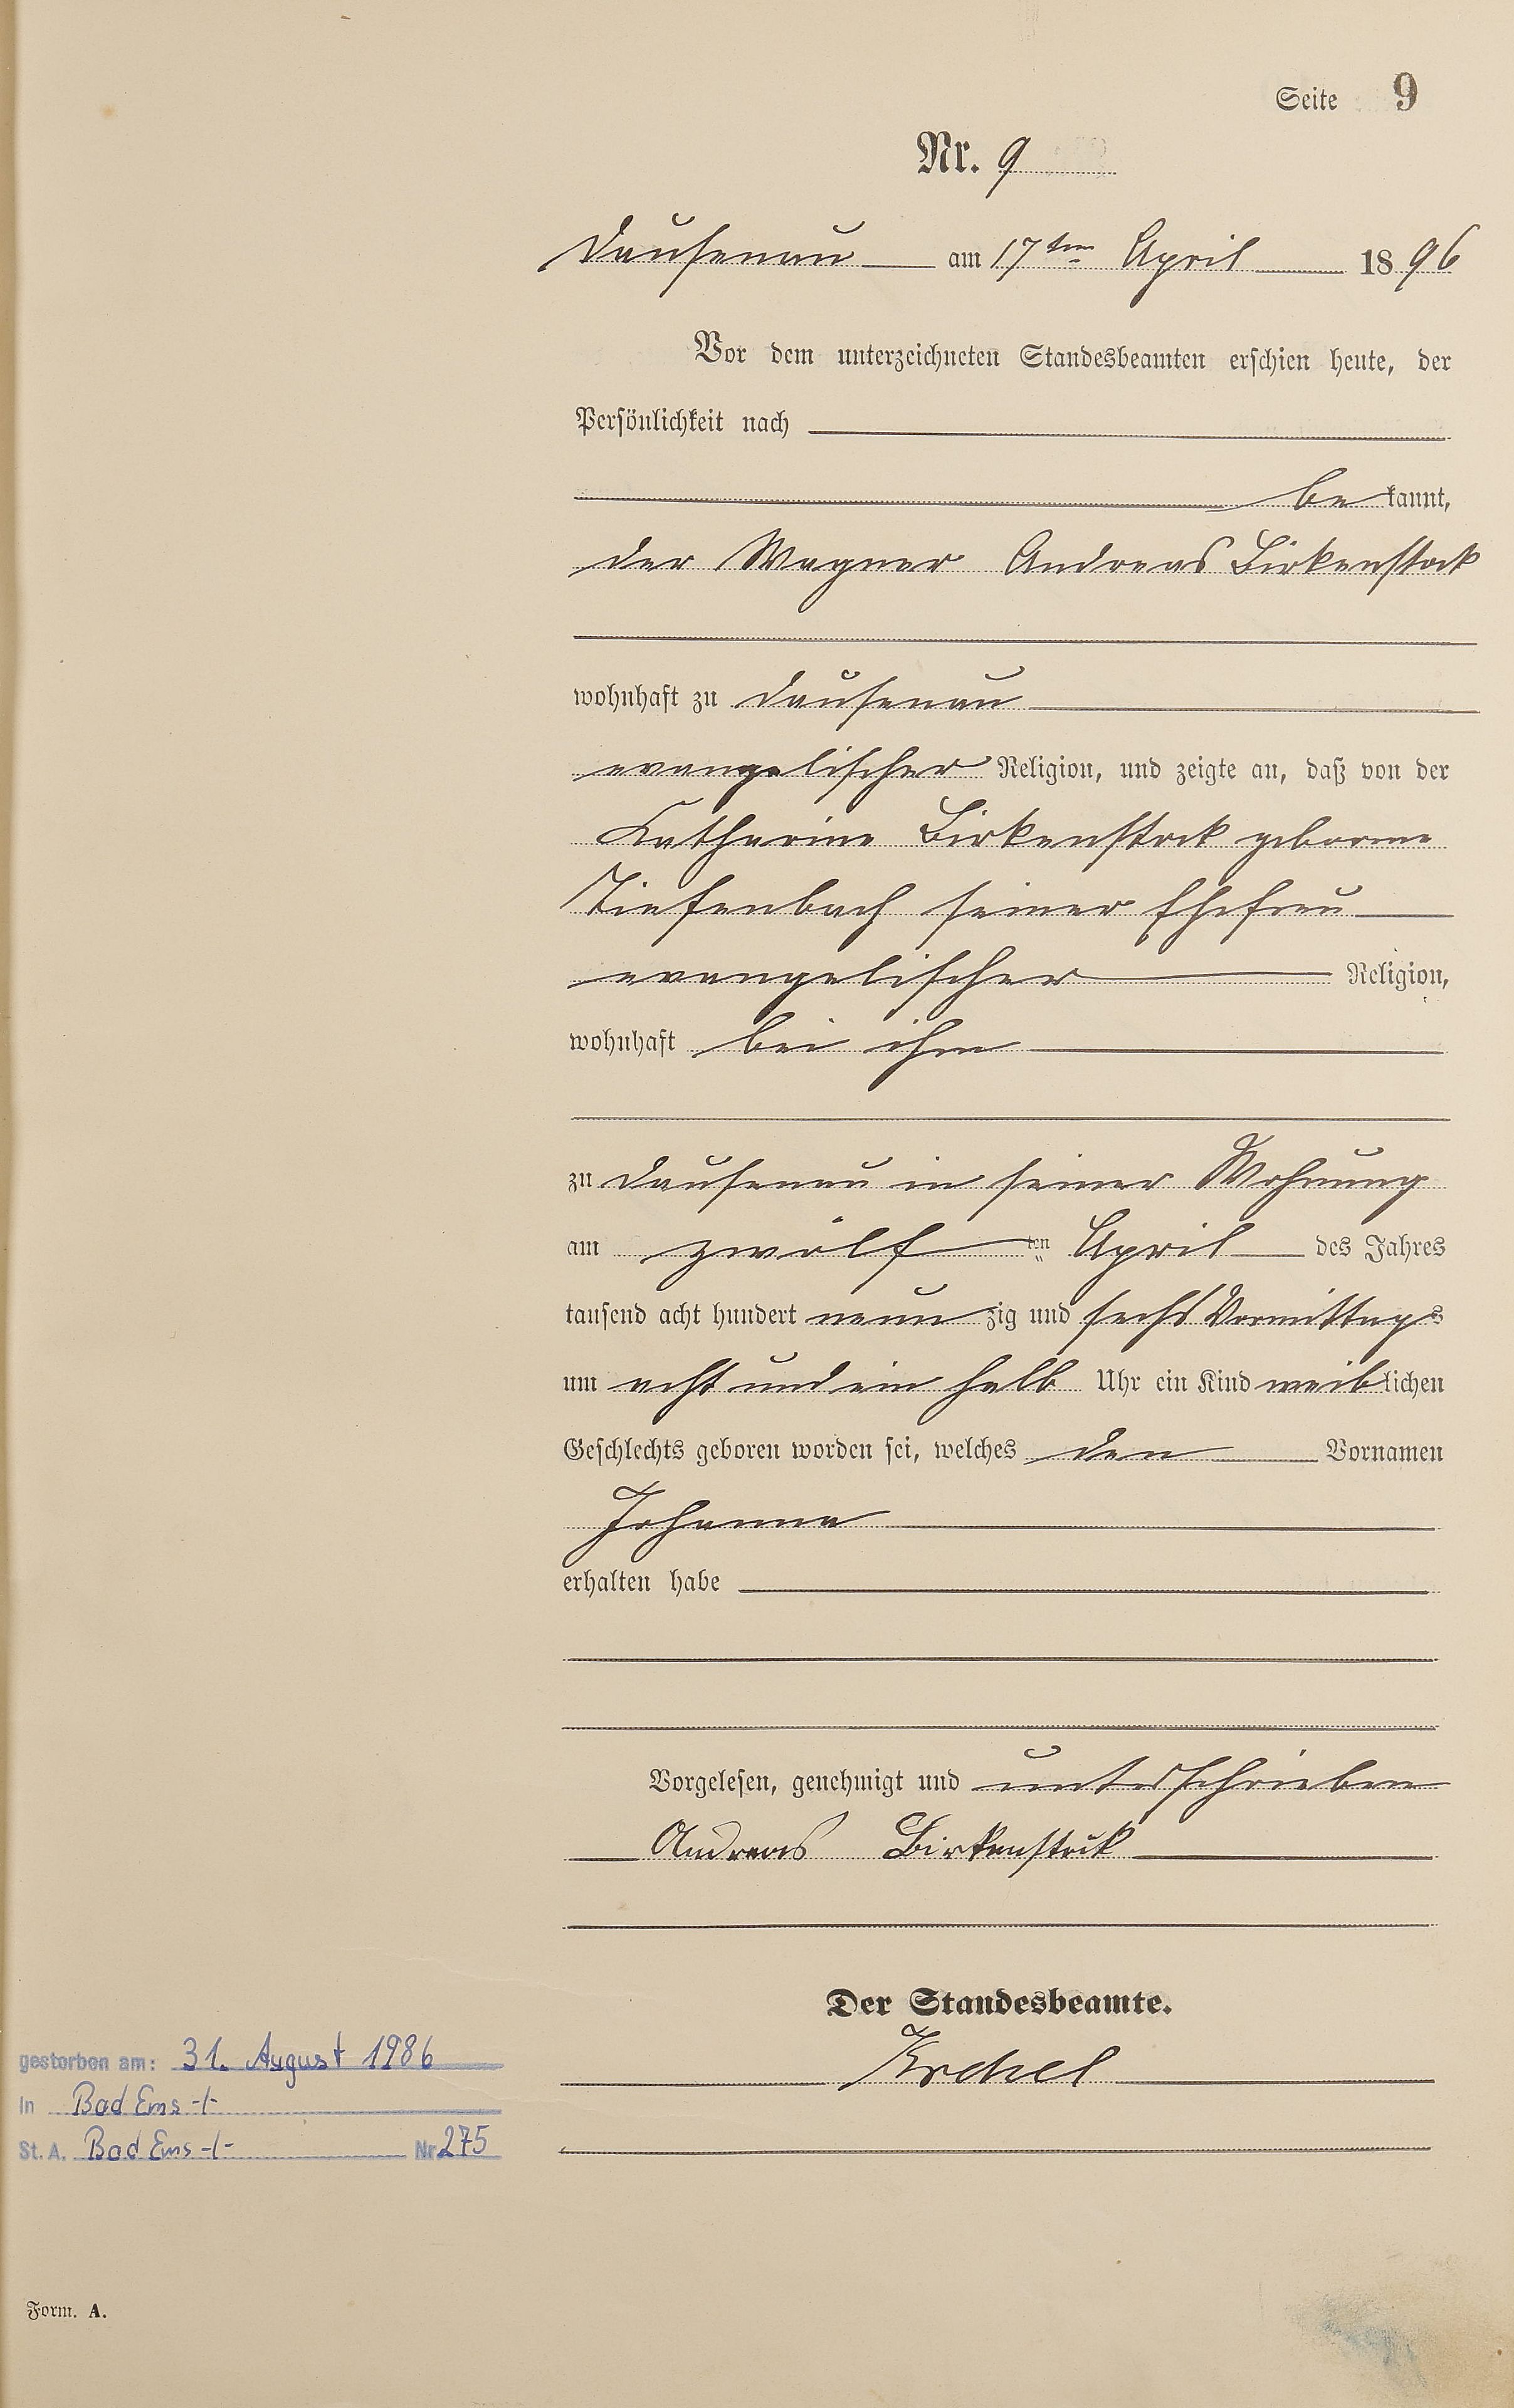 Seite 9
Nr. 9
Dausenau am 17ten April 1896
Vor dem unterzeichneten Standesbeamten erschien heute, der
Persönlichkeit nach
bekannt,
der Wagner Andreas Birkenstock
wohnhaft zu Dausenau
evangelischer Religion, und zeigte an, daß von der
Katharine Birkenstock geborene
Tiefenbach seiner Ehefrau
evangelischer Religion,
wohnhaft bei ihm
zu Dausenau in seiner Wohnung
am zwölften April des Jahres
tausend acht hundert neunzig und sechs Vormittags
um acht und ein halb Uhr ein Kind weiblichen
Geschlechts geboren worden sei, welches den Vornamen
Johanna
erhalten habe
Vorgelesen, genehmigt und unterschrieben
Andreas Birkenstock
Der Standesbeamte.
gestorben am: 31. August 1986
in Bad Ems -/-
St. A. Bad Ems -/- Nr 275
Form. A.